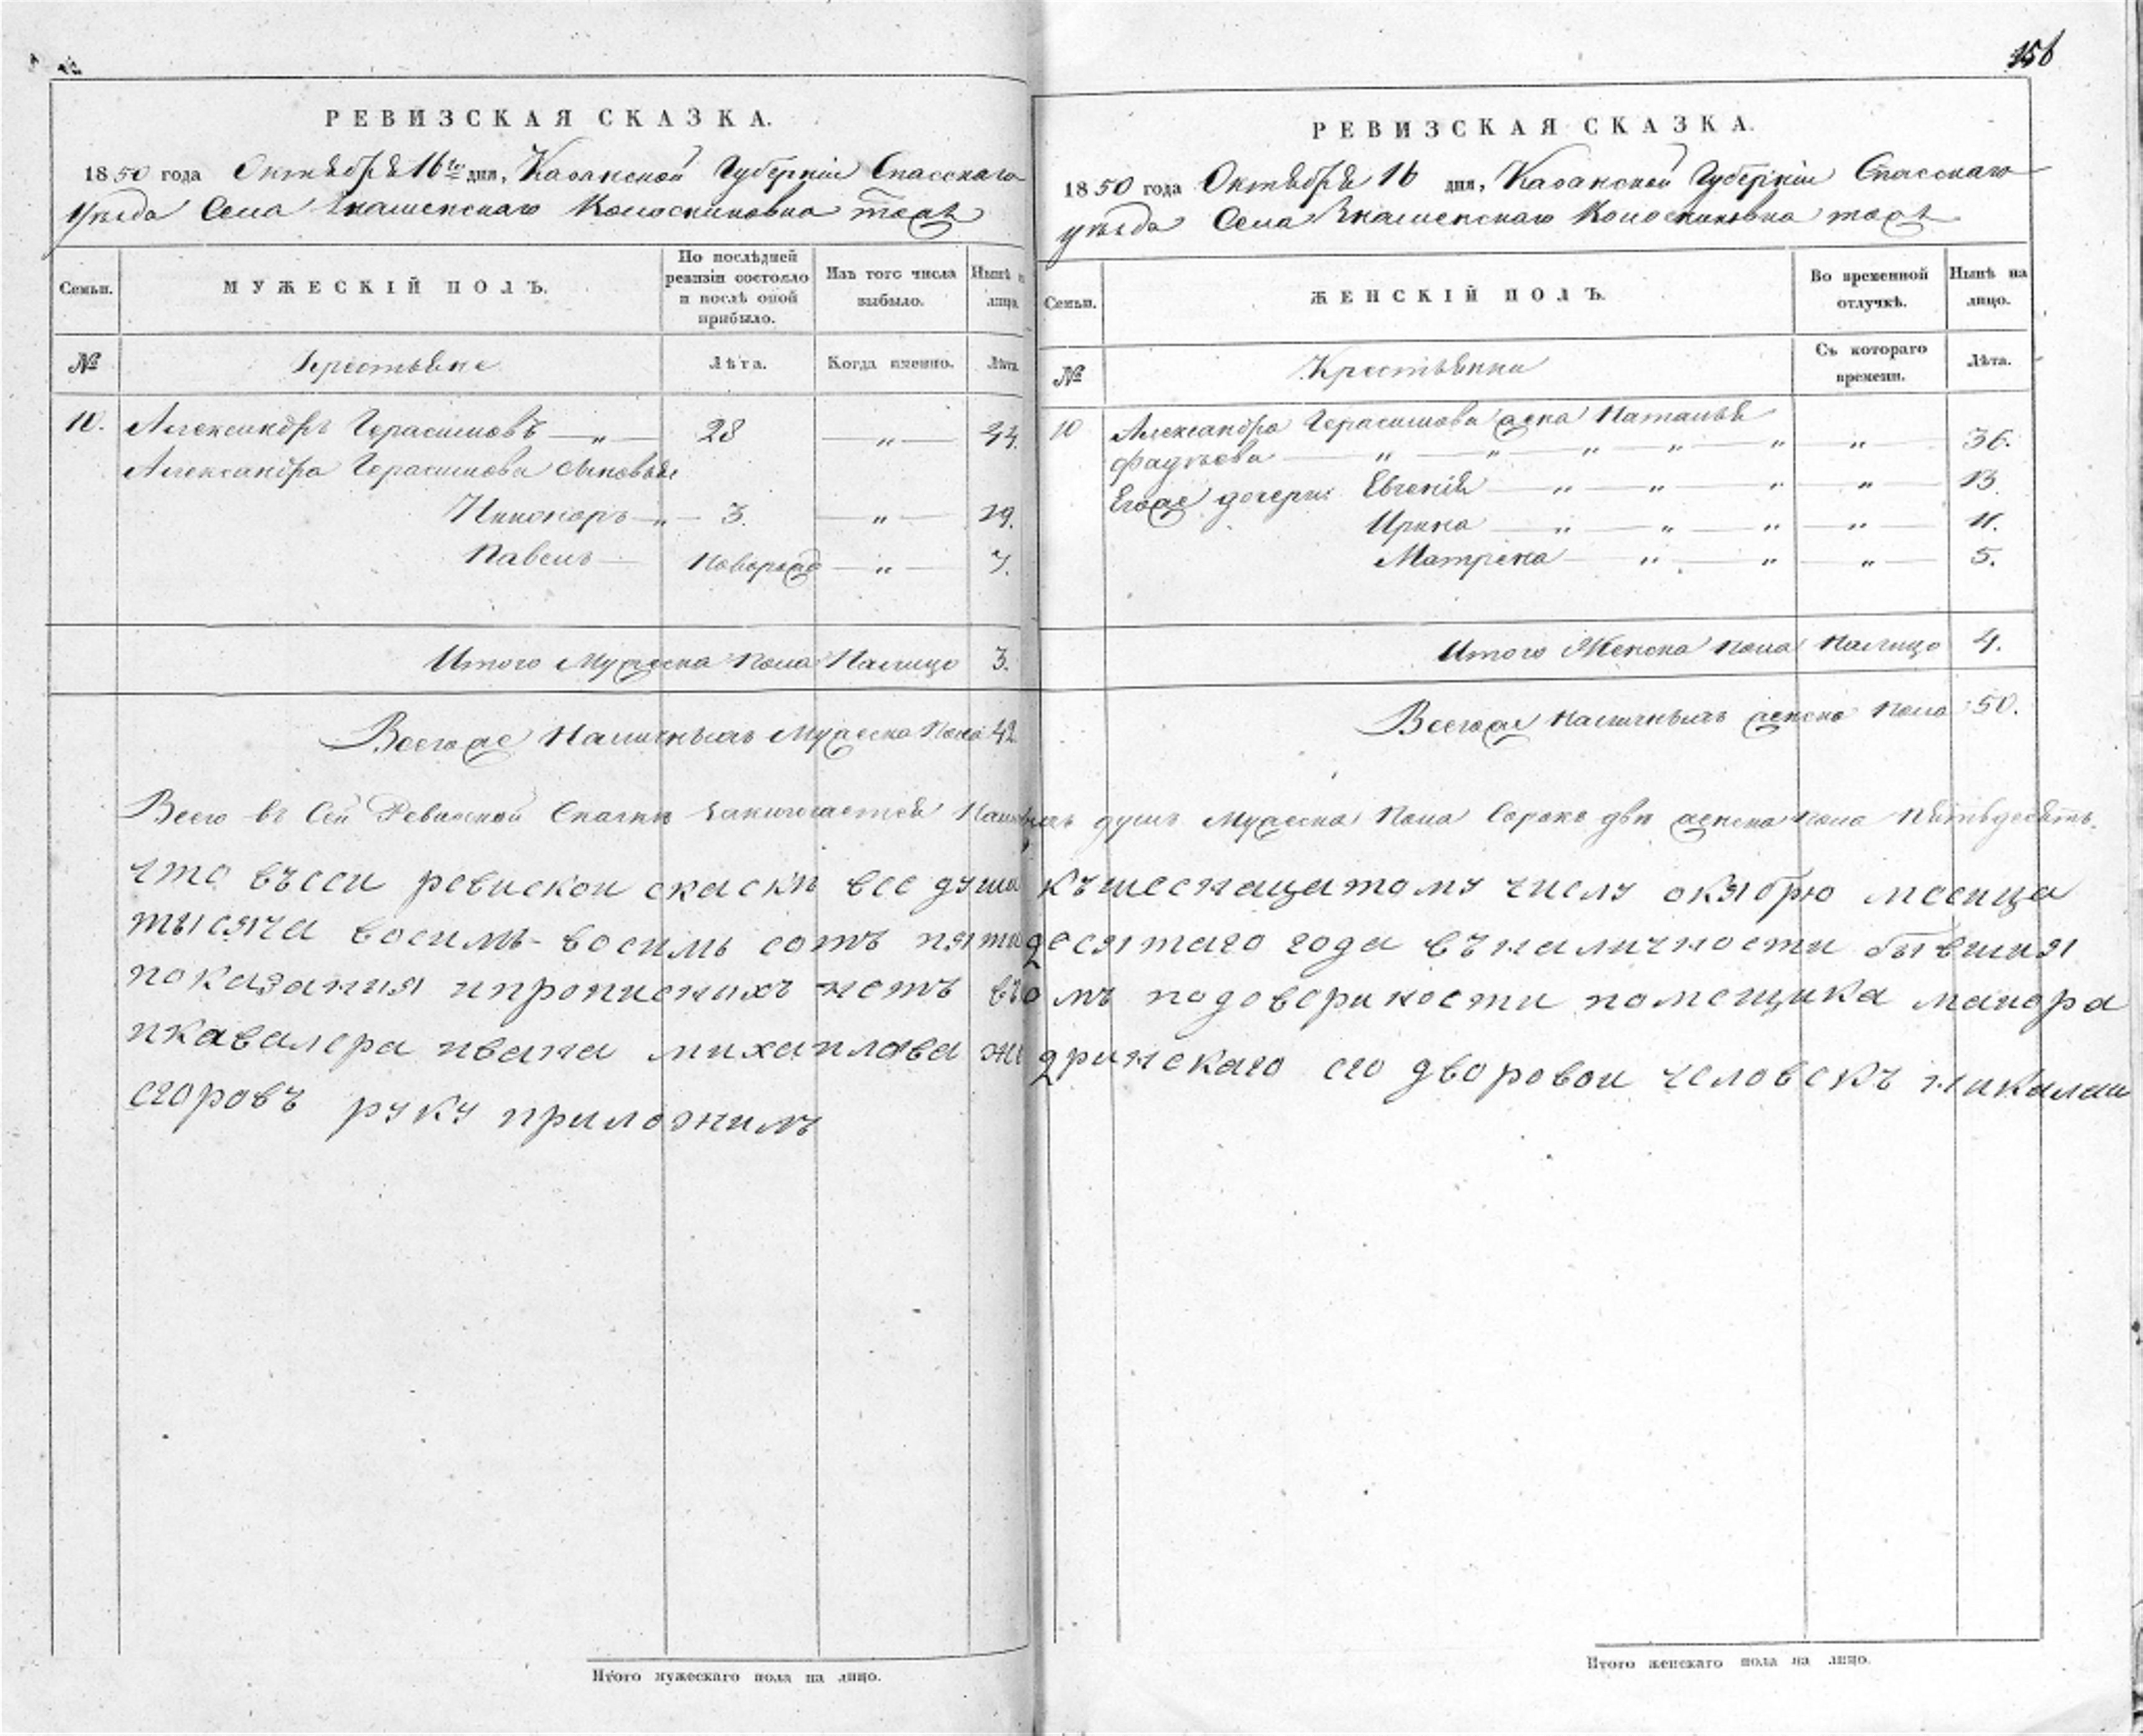 156
РЕВИЗСКАЯ СКАЗКА.
1850 года Октября 16го дня, Казанской Губерніи Спасскаго
Уѣзда Села Знаменскаго Колоскиковка тожъ
Семьи.
МУЖЕСКІЙ ПОЛЪ.
По послѣдней ревизіи состояло и послѣ оной прибыло.
Изъ того числа выбыло.
Нынѣ на лицо.
№
Крестьяне
Лѣта.
Когда именно.
Лѣта.
10. Александръ Герасимовъ — „ — 28 — „ — 44.
Александра Герасимова сыновья
Никоноръ — „ — 3. — „ — 19.
Павелъ — Новорожд — „ — 7.
Итого Мужеска Пола Налицо 3.
Всегоже Наличныхъ Мужеска Пола 42
РЕВИЗСКАЯ СКАЗКА.
1850 года Октября 16 дня, Казанской Губерніи Спасскаго
уѣзда Села Знаменскаго Колоскиковка тожъ
Семьи.
ЖЕНСКІЙ ПОЛЪ.
Во временной отлучкѣ.
Нынѣ на лицо.
№
Крестьянки
Съ котораго времени.
Лѣта.
10 Александра Герасимова жена Наталья
Фадѣева — „ — „ — „ — „ — „ — „ — 36.
Егоже дочери: Евгенія — „ — „ — „ — „ — 13.
Ирина — „ — „ — „ — „ — 11.
Матрена — „ — „ — „ — 5.
Итого Женска пола Налицо 4.
Всегоже Наличныхъ женска пола 50.
Всего въ Сей Ревизской Сказкѣ Заключается Наличныхъ душъ Мужеска Пола Сорокъ двѣ женска пола Пятьдесятъ.
что въсеи ревискои скаски все души къшеснацатому числу окябрю месица
тысяча восимъ-восимь сотъ пятидесятаго года въналичности бывшия
показания ипрописныхъ нетъ втомъ подоверености помещика маиора
икавалера ивана михаилова жидринскаго его дворовои человекъ никалаи
егоровъ руку приложилъ
Итого мужескаго пола на лицо.
Итого женскаго пола на лицо.